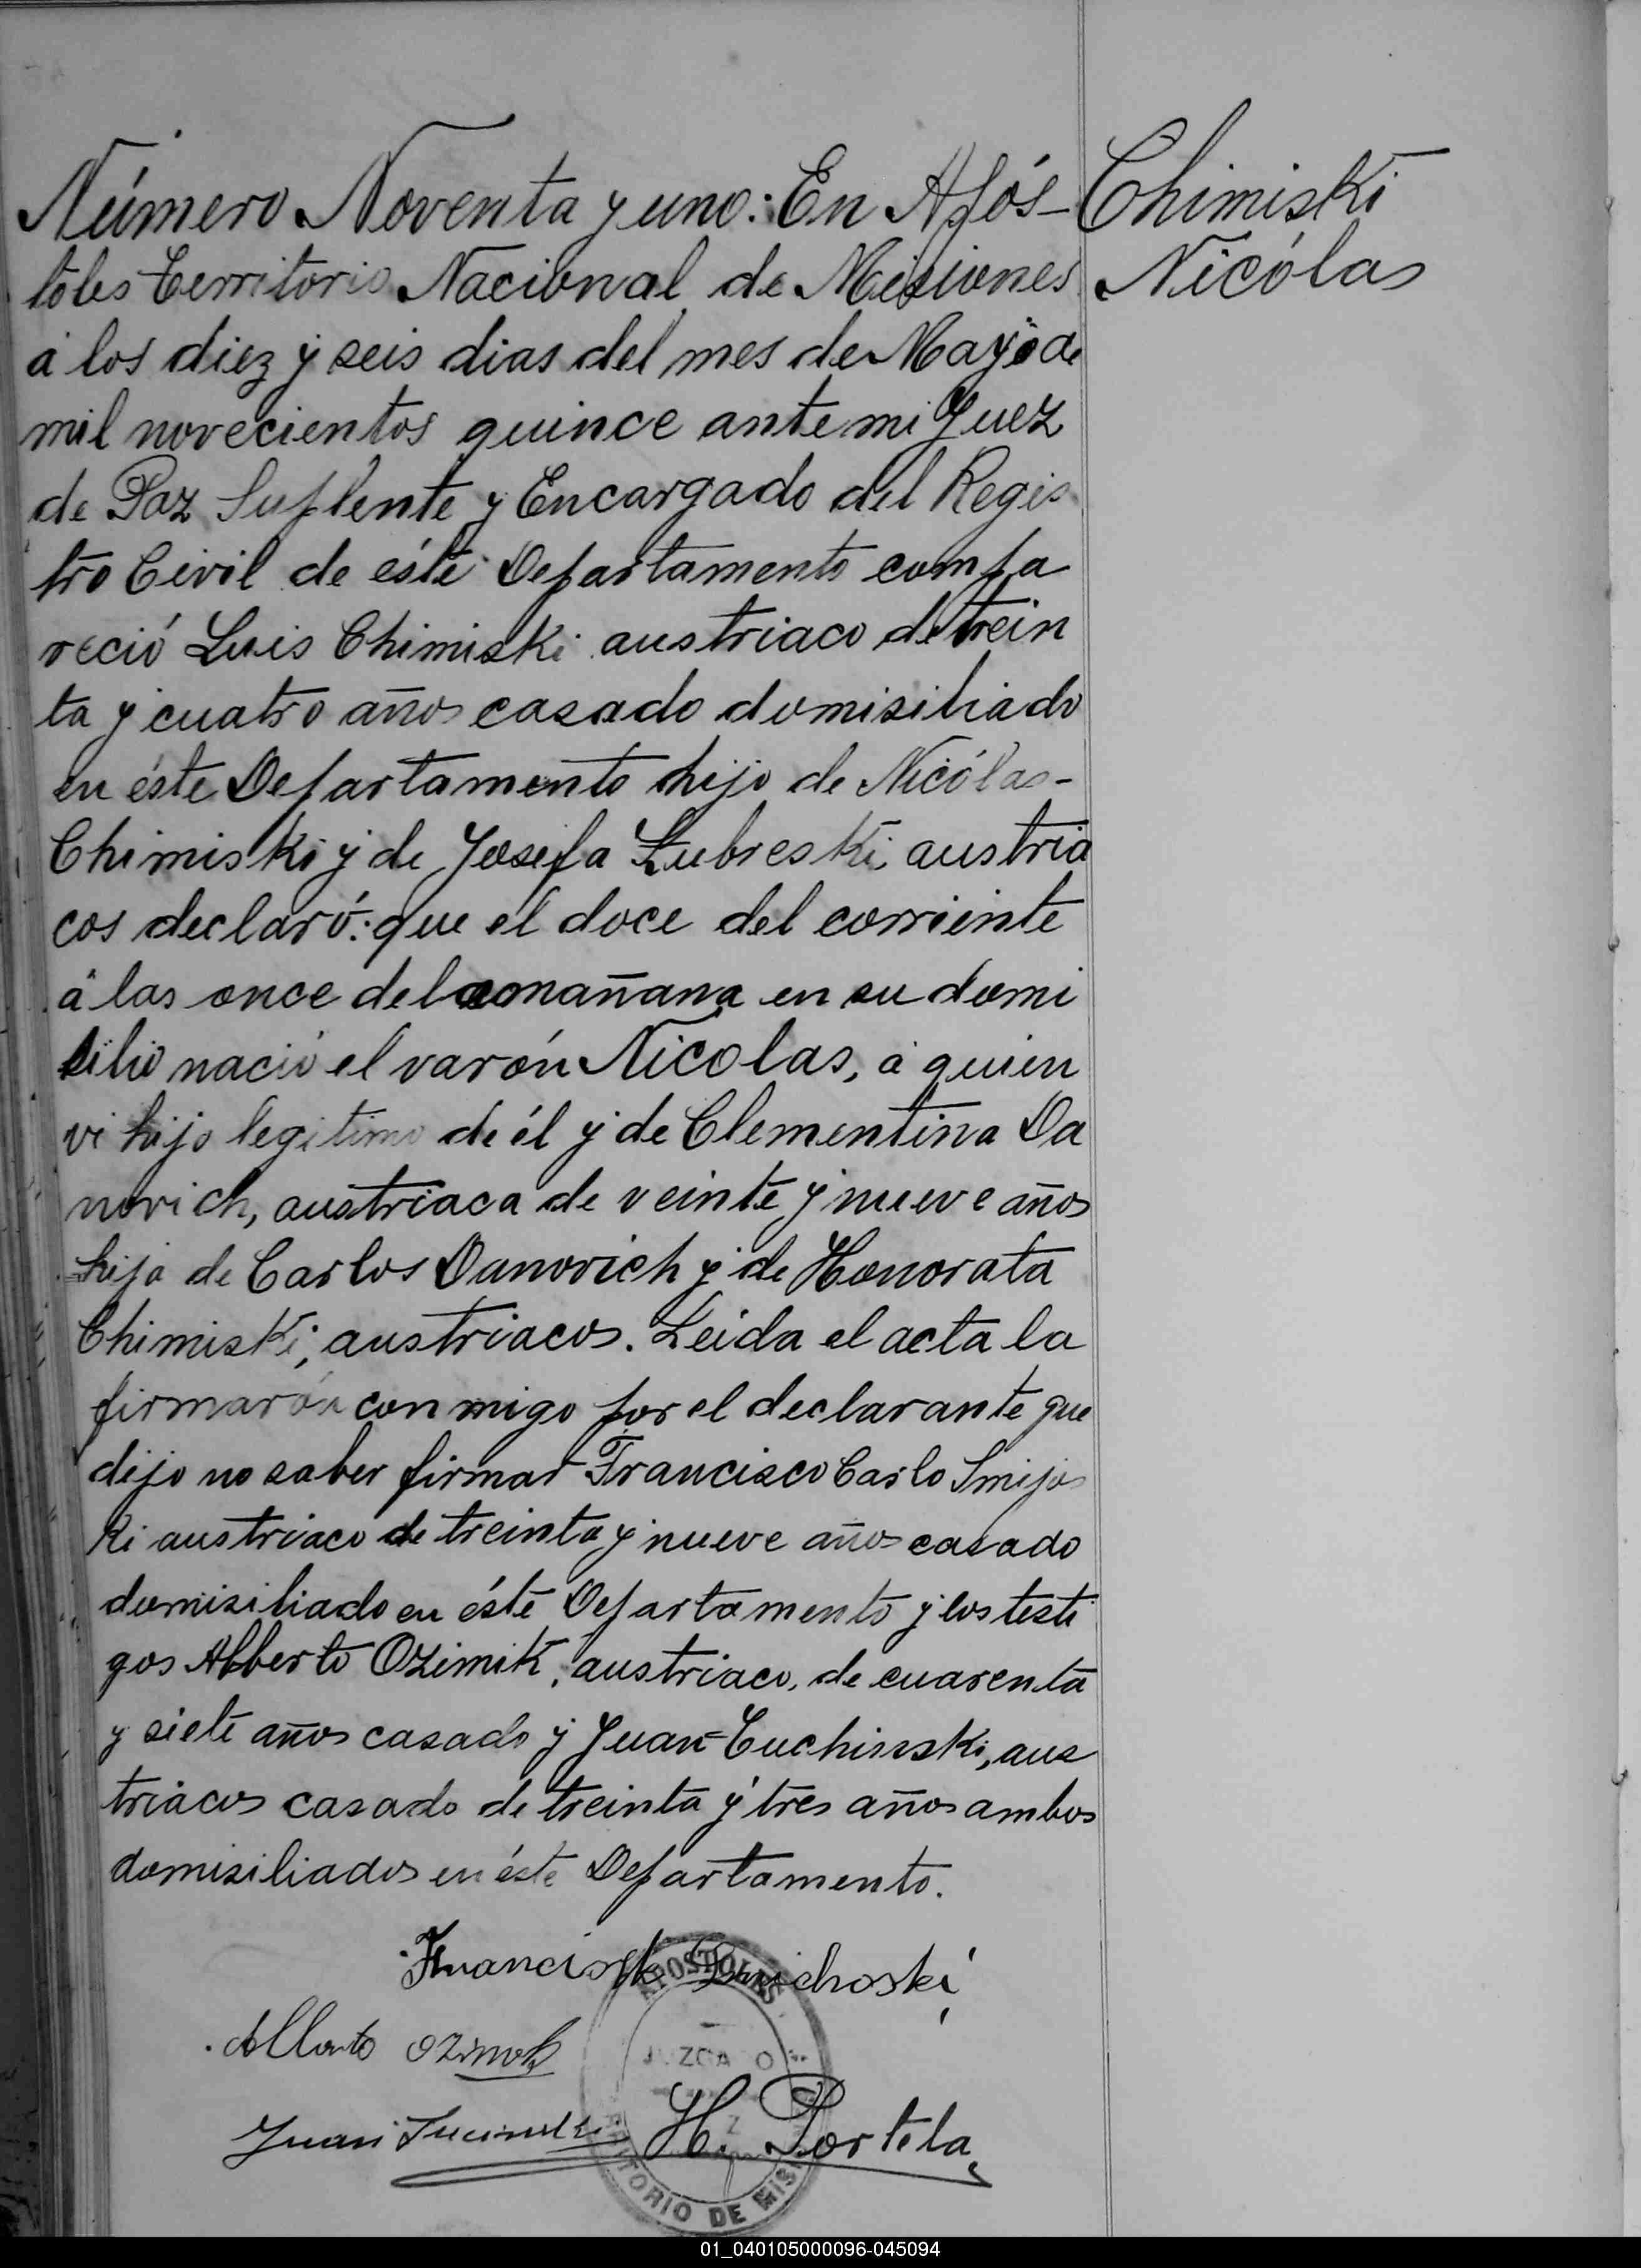 Número Noventa y uno: En Após-
toles Territorio Nacional de Misiones
á los diez y seis dias del mes de Mayo de
mil novecientos quince ante mi Juez
de Paz Suplente y Encargado del Regis
tro Civil de éste Departamento compa
reció Luis Chimiski austriaco de trein
ta y cuatro años casado domisiliado
en éste Departamento hijo de Nicólas-
Chimiski y de Josefa Lubreski, austria
cos declaró: que el doce del corriente
á las once de la mañana en su domi
silio nació el varón Nicolas, á quien
vi hijo legitimo de él y de Clementina Da
novich, austriaca de veinte y nueve años
hija de Carlos Danovich y de Honorata
Chimiski, austriacos. Leida el acta la
firmarón conmigo por el declarante que
dijo no saber firmar Francisco Carlo Smijos
ki austriaco de treinta y nueve años casado
domisiliado en éste Departamento y los testi
gos Alberto Ozimik, austriaco, de cuarenta
y siete años casado y Juan Cuchinski, aus
triacos casado de treinta y tres años ambos
domisiliados en éste Departamento.
Chimiski
Nicólas
Alberto
Juan
H. Portela
APOSTOLES
JUZGADO
TERRITORIO DE MIS
01_040105000096-045094